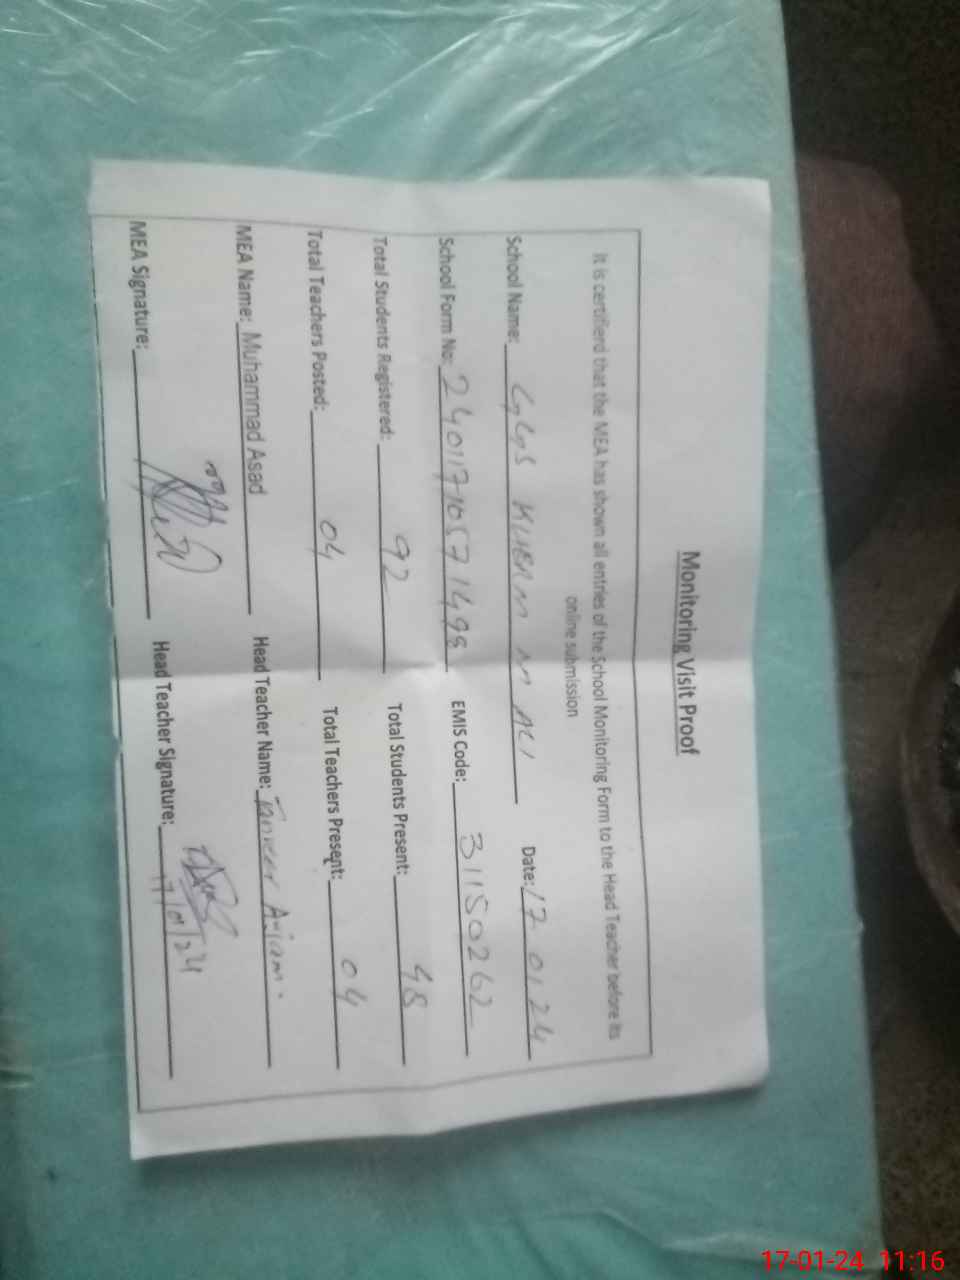 Monitoring Visit Proof
It is certifierd that the MEA has shown all entries of the School Monitoring Form to the Head Teacher before its
online submission
School Name: GGS M ALI Date: 17 01 24
School Form No: 24011710571498 EMIS Code: 31150262
Total Students Registered: 92 Total Students Present: 48
Total Teachers Posted: 04 Total Teachers Present: 04
MEA Name: Muhammad Asad Head Teacher Name:
MEA Signature: Head Teacher Signature:
17/01/24
17-01-24 11:16